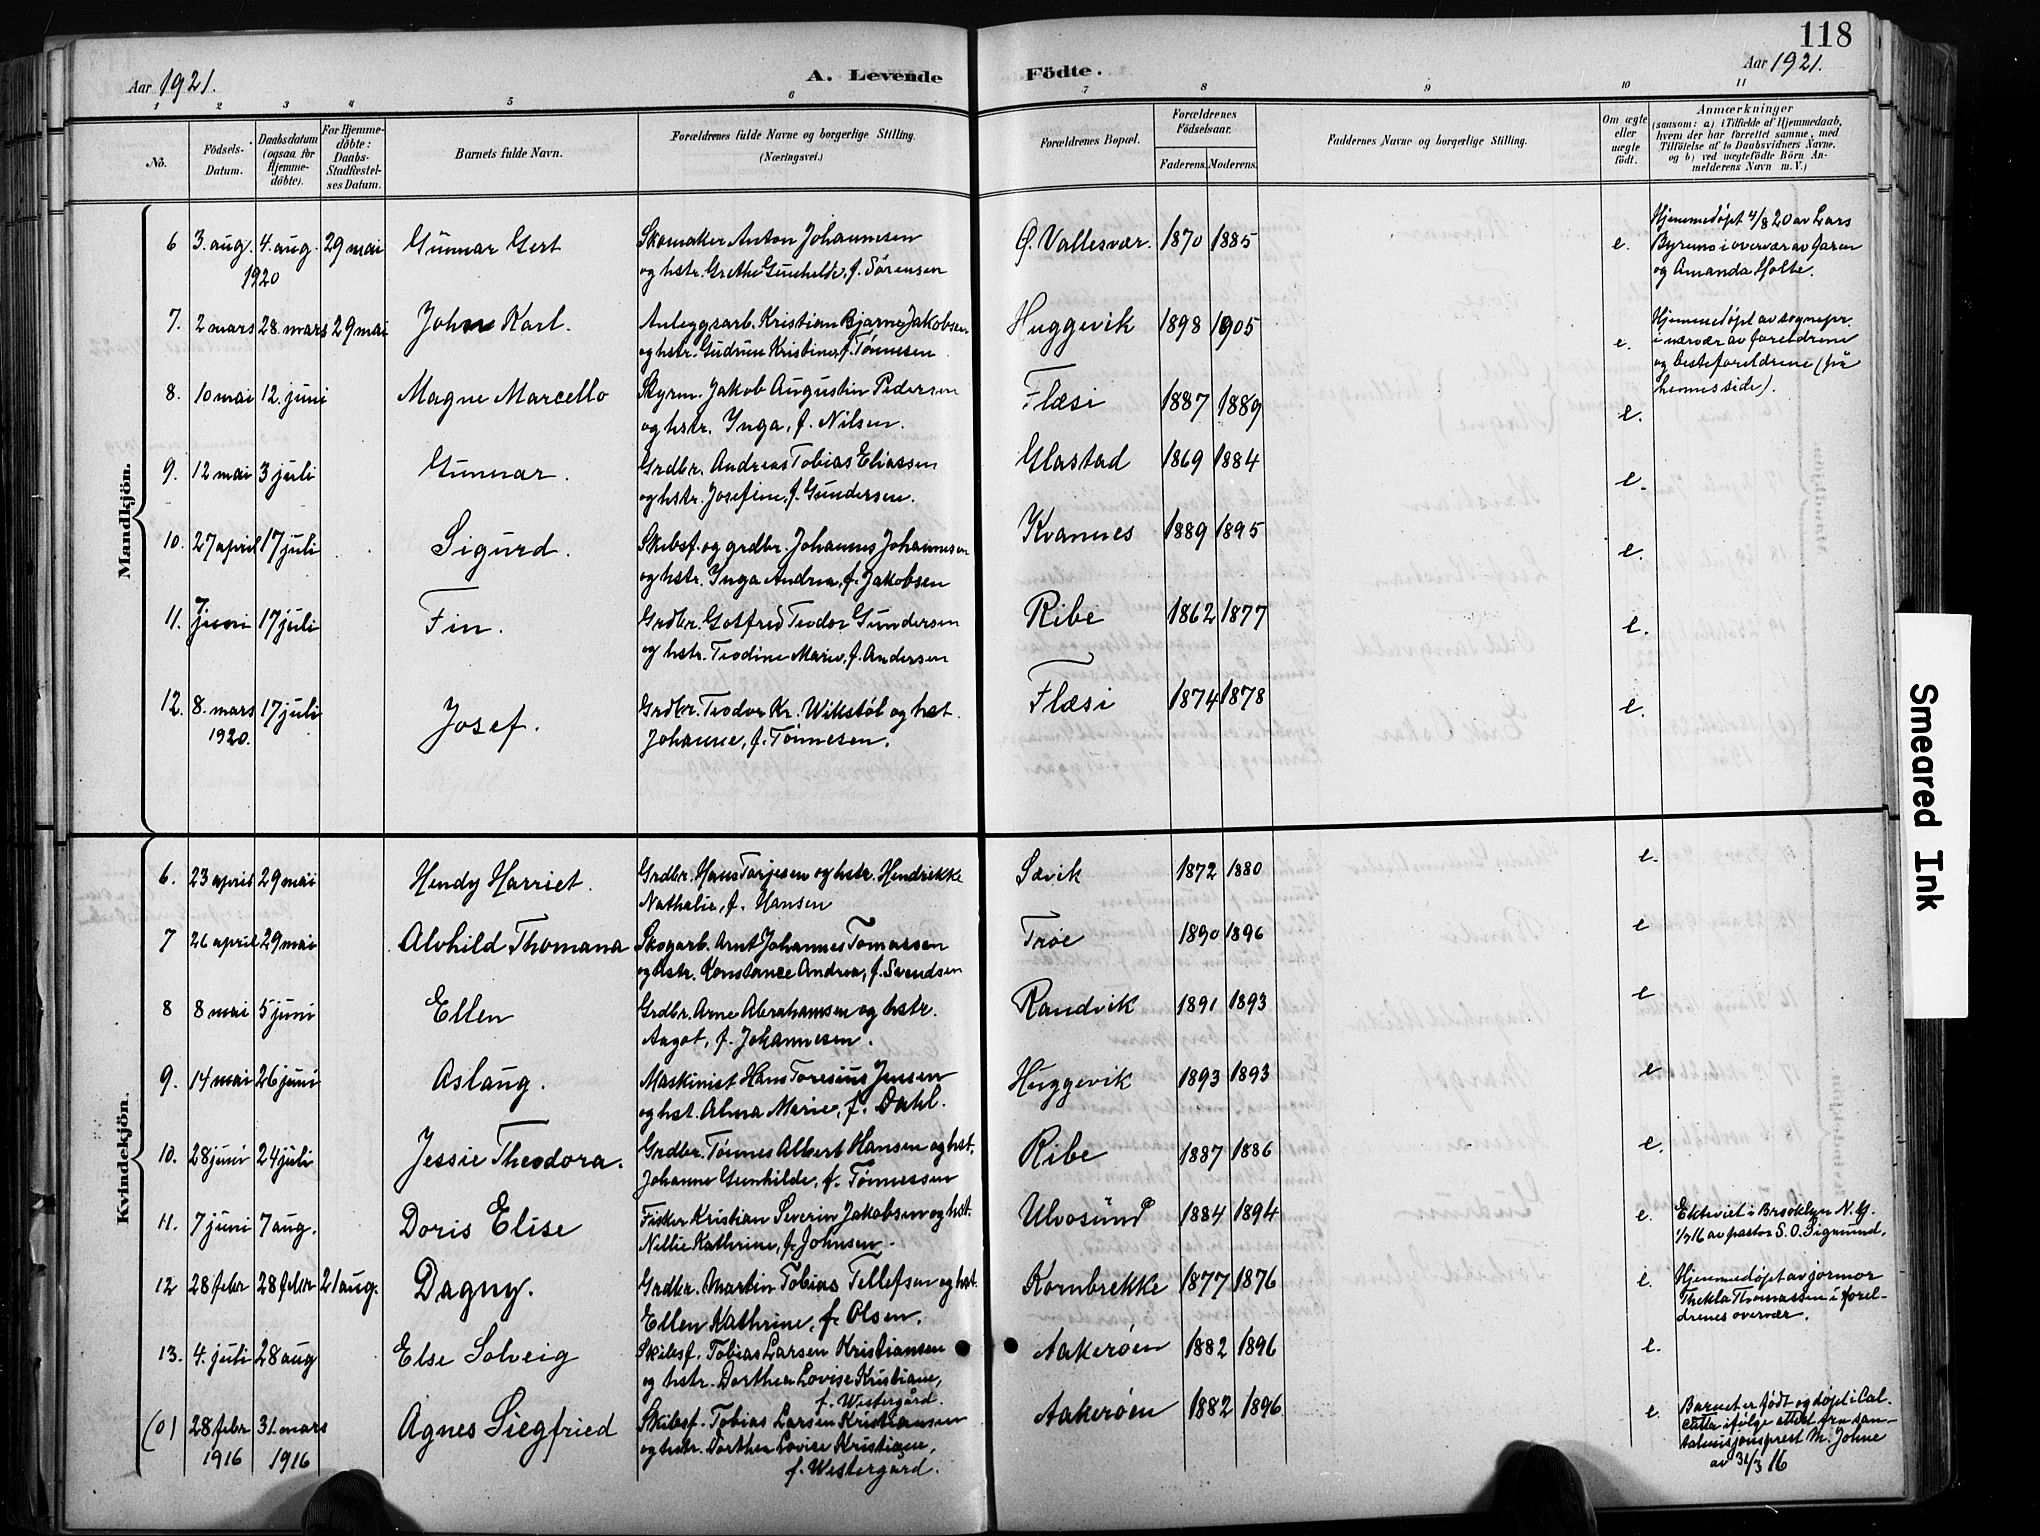 118
Aar 1921.
A. Levende Födte.
Aar 1921.
1 2 3 4 5 6 7 8 9 10 11
Nö.
Födsels-Datum.
Daabsdatum (ogsaa for Hjemme-döbte).
For Hjemme-döbte: Daabs-Stadfæstel-ses Datum.
Barnets fulde Navn.
Forældrenes fulde Navne og borgerlige Stilling.
(Næringsvei.)
Forældrenes Bopæl.
Forældrenes Födselsaar.
Faderens. Moderens.
Faddernes Navne og borgerlige Stilling.
Om ægte eller uægte födt.
Anmærkninger
(saasom: a) i Tilfælde af Hjemmedaab,
hvem der har forrettet samme, med
Tilföielse af to Daabsvidners Navne,
og b) ved uægtefödte Börn An-
melderens Navn m. V.)
Mandkjön.
6 3. aug. 4. aug. 29 mai Gunnar Gert Skomaker Anton Johannesen Ø. Vallesvær. 1870 1885 e. Hjemmedøpt 4/8 20 av Lars
1920 og hstr. Grethe Gunhilde, f. Sørensen Byremo i overvær av Jaren
og Amanda Holte.
7. 2 mars 28. mars 29 mai John Karl. Anleggsarb. Kristian Bjarne Jakobsen Huggevik 1898 1905 e. Hjemmedøpt av sognepr.
og hstr. Gudrun Kristine, f. Tønnesen i nærvær av foreldrene
og besteforeldrene (på
hennes side).
8. 10 mai 12. juni Magne Marcello Styrm. Jakob Augustin Pedersen Flæsi 1887 1889 e.
og hstr. Inga, f. Nilsen.
9. 12 mai 3 juli Gunnar. Grdbr. Andreas Tobias Eliassen Glastad 1869 1884 e.
og hstr. Josefine, f. Gundersen.
10. 27 april 17 juli Sigurd. Skibsf. og grdbr. Johannes Johannesen Kvannes 1889 1895 e.
og hstr. Inga Andrea, f. Jakobsen
11. 7 juni 17 juli Fin. Grdbr. Gotfred Teodor Gundersen Ribe 1862 1877 e.
og hstr. Teodine Marie, f. Andersen
12. 8. mars 17 juli Josef. Grdbr. Teodor Kr. Wikstøl og hst. Flæsi 1874 1878 e.
1920. Johanne, f. Tønnesen.
Kvindekjön.
6. 23 april 29 mai Hendy Harriet. Grdbr. Hans Tarjesen og hstr. Hendrikke Sævik 1872 1880 e.
Nathalie, f. Hansen
7 26 april 29 mai Alvhild Thomana Skogarb. Arnt Johannes Tomassen Trøe 1890 1896 e
og hstr. Konstance Andrea, f. Svendsen
8 8 mai 5 juni Ellen Grdbr. Arne Abrahamsen og hstr. Randvik 1891 1893 e
Aagot, f. Johannesen.
9. 14 mai 26 juni Aslaug. Maskinist Hans Toresius Jensen Huggevik 1893 1893 e
og hst. Alma Marie, f. Dahl.
10. 28 juni 24 juli Jessie Theodora. Grdbr. Tønnes Albert Hansen og hst. Ribe 1887 1886 e.
Johanne Gunhilde, f. Tønnessen
11. 7 juni 7 aug. Doris Elise Fisker Kristian Severin Jakobsen og hst. Ulvøsund 1884 1894 e. Ekteviet i Brooklyn N.Y.
Nillie Kathrine, f. Johnsen. 1/7 16 av pastor S. O. Sigmund.
12 28 febr 28 febr 21 aug. Dagny. Grdbr. Martin Tobias Tellefsen og hst. Kornbrekke 1877 1876 e. Hjemmedøpt av jormor
Ellen Kathrine, f. Olsen. Thekla Thomassen i forel-
drenes overvær.
13. 4. juli 28 aug Else Solveig Skibsf. Tobias Larsen Kristiansen Aakerøen 1882 1896 e.
og hstr. Dorthea Lovise Kristiane,
f. Westergård.
(0) 28 febr 31. mars Agnes Siegfried Skibsf. Tobias Larsen Kristiansen Aakerøen 1882 1896 e. Barnet er født og døpt i Cal-
1916 1916 og hstr. Dorthea Lovise Kristiane, cutta ifølge attest fra san-
f. Westergård. talmisjonsprest M. Johne
av 31/3 16
Smeared Ink